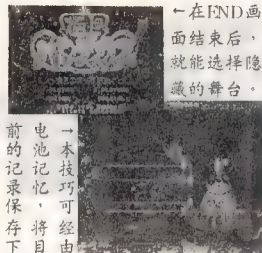 ←在END画
面结束后，
就能选择隐
藏的舞台。
→本技巧可经由
电池记忆，将目
前的记录保存下